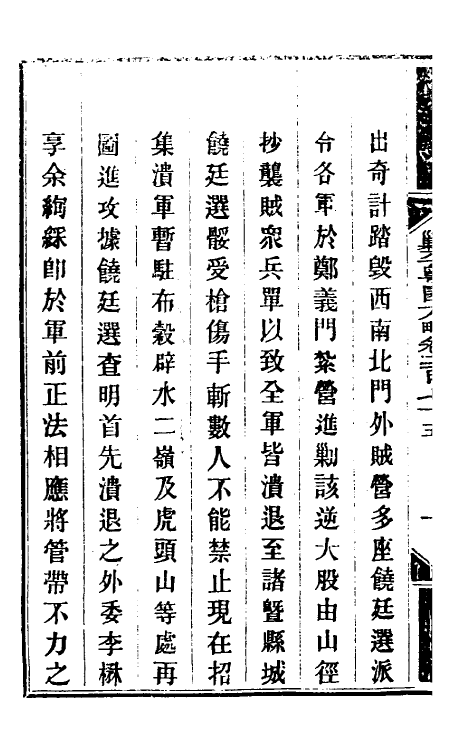 出奇計踏毀西南北門外賊營多座饒廷選派
令各軍於鄭義門紮營進剿該逆大股由山徑
抄襲賊衆兵單以致全軍皆潰退至諸曁縣城
饒廷選骽受槍傷手斬數人不能禁止現在招
集潰軍暫駐布穀辟水二嶺及虎頭山等處再
圖進攻據饒廷選查明首先潰退之外委李楙
享余絢綵卽於軍前正法相應將管帶不力之